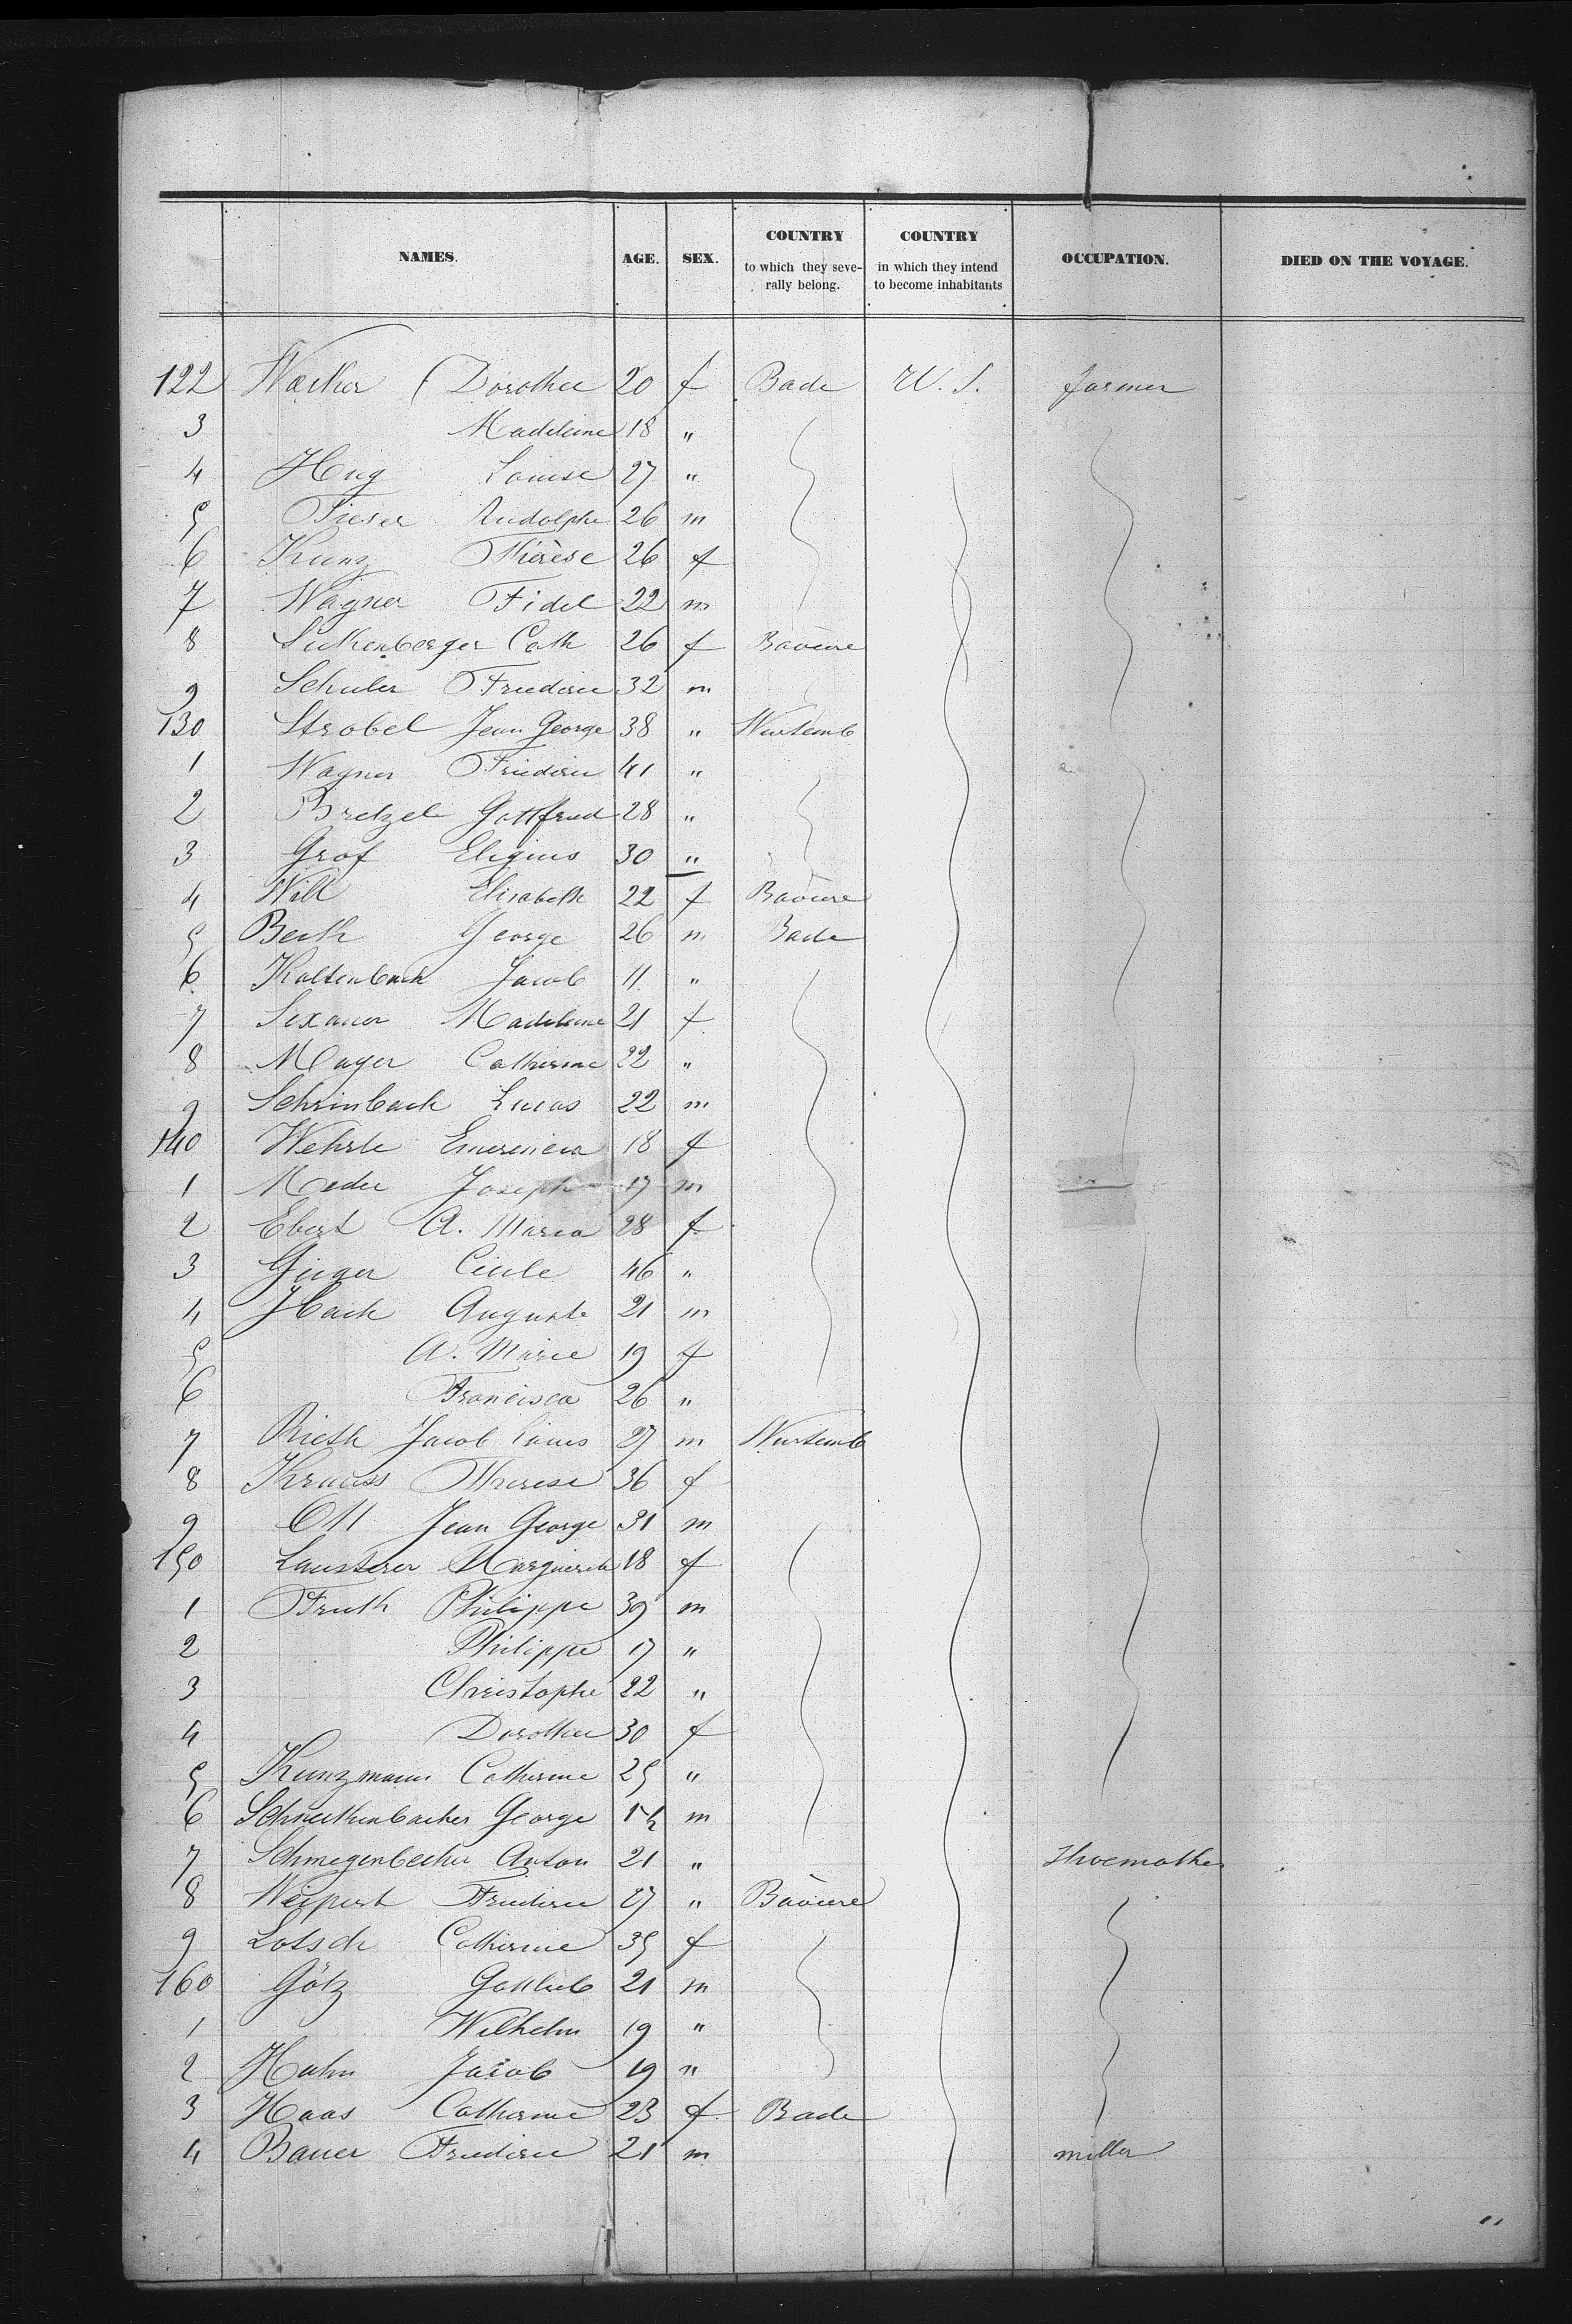 NAMES. AGE. SEX. COUNTRY to which they seve-rally belong. COUNTRY in which they intend to become inhabitants OCCUPATION. DIED ON THE VOYAGE.
122 Dorothee 20 f Bade U. S. farmer
3 Madeleine 18 "
4 Hug Louise 27 "
5 Fieser Rudolphe 26 m
6 Kunz Thérèse 26 f
7 Wagner Fidel 22 m
8 Cath 26 f Bavière
9 Schuler Friederic 32 m
130 Strobel Jean George 38 " Wurtemb
1 Wagner Friederic 41 "
2 Bretzel Gottfried 28 "
3 Graf Eligius 30 "
4 Will Elisabeth 22 f Bavière
5 Beck George 26 m Bade
6 Kaltenbach Jacob 11 "
7 Sexauer Madeleine 21 f
8 Mayer Catherine 22 "
9 Lucas 22 m
140 Wehrle 18 f
1 Joseph 17 m
2 Ebert A. Maria 28 f
3 Cécile 46 "
4 Auguste 21 m
5 A. Marie 19 f
6 Francisca 26 "
7 Rieth Jacob Louis 27 m Wurtemb
8 Krauss Therese 36 f
9 Ott Jean George 31 m
150 Lausterer Marguerite 18 f
1 Fruth Philippe 39 m
2 Philippe 17 "
3 Christophe 22 "
4 Dorothee 30 f
5 Kunzmann Catherine 25 "
6 George m
7 Anton 21 " Shoemaker
8 Weipert Friederic 27 " Bavière
9 Lotsch Catherine 35 f
160 Götz Gottlieb 21 m
1 Wilhelm 19 "
2 Hahn Jacob 19 "
3 Haas Catherine 23 f Bade
4 Bauer Friederic 21 m miller